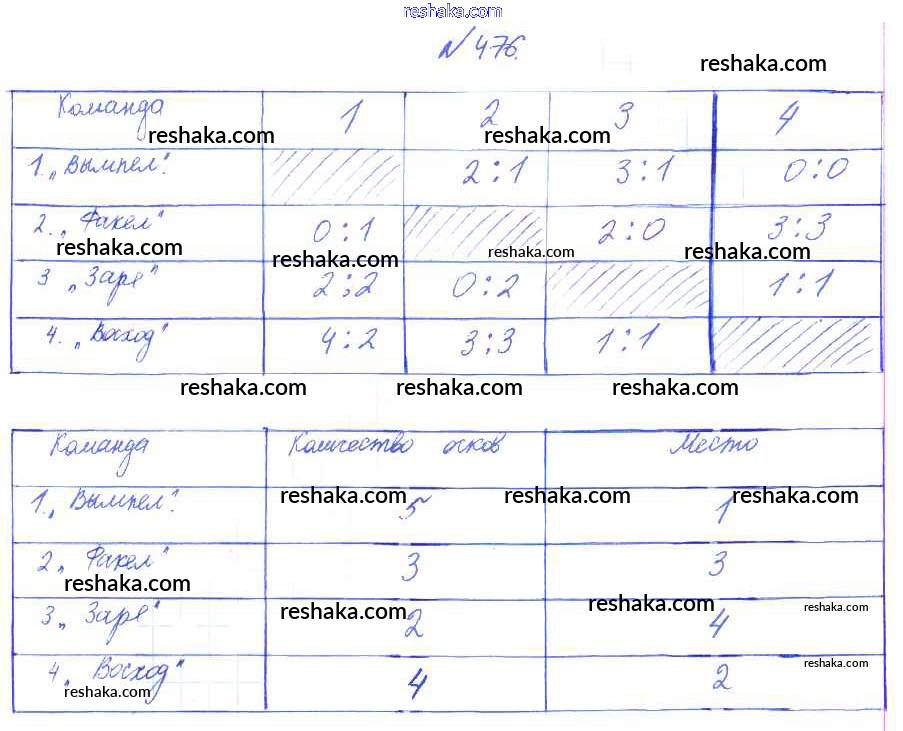 reshaka.com
№ 476.
reshaka.com
Команда 1 2 3 4
reshaka.com reshaka.com reshaka.com
1. „Вымпел". 2:1 3:1 0:0
2. „Факел" 0:1 2:0 3:3
reshaka.com reshaka.com reshaka.com reshaka.com
3 „Заря" 2:2 0:2 1:1
4. „Восход" 4:2 3:3 1:1
reshaka.com reshaka.com reshaka.com
Команда Количество очков Место
1. „Вымпел". 5 1
reshaka.com reshaka.com reshaka.com
2 „Факел" 3 3
reshaka.com
3 „Заря" 2 4
reshaka.com reshaka.com reshaka.com
4 „Восход" 4 2
reshaka.com reshaka.com